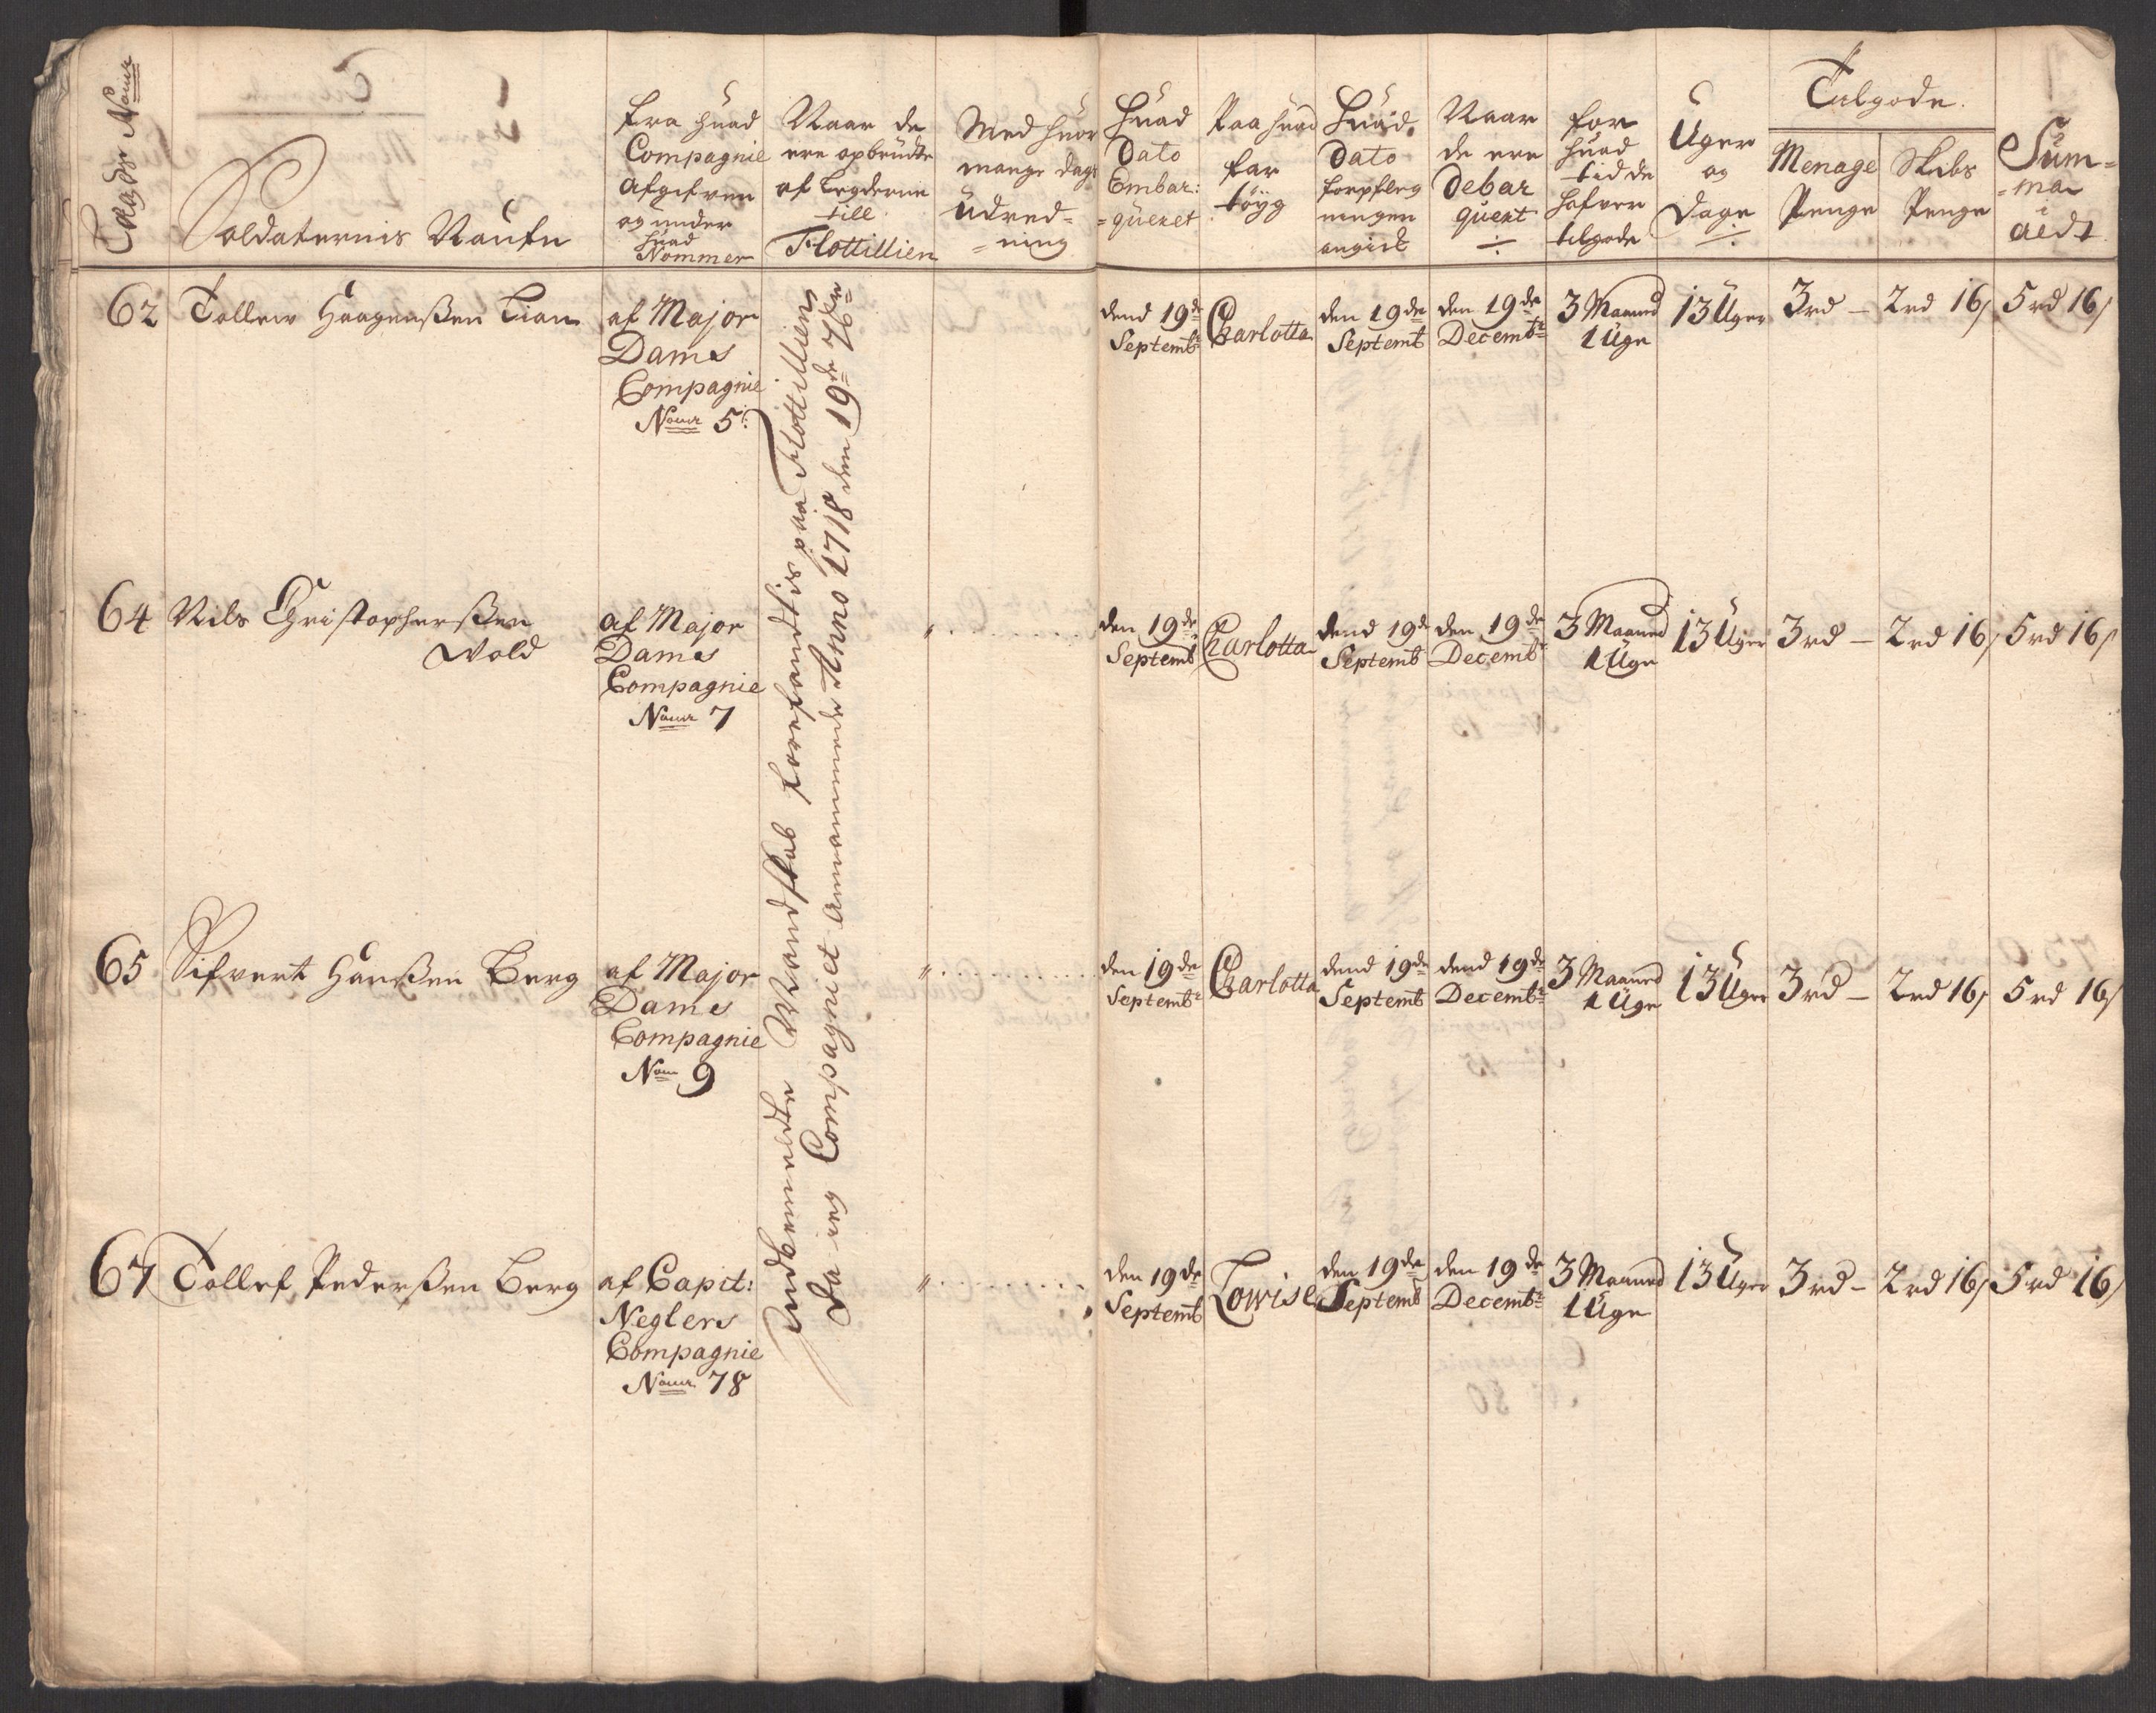 Lægds Nomr
Soldaternis Naufn
Fra huad
Compagnie
Afgifven
og under
huad
Nommer
Naar de
ere opbrudte
af Legderne
till
Flottillien
Med huor
mange dags
Udred=
=ning
Huad
Dato
Embar:
=queret
Paa huad
far
töyg
Huad
Dato
forpfleg
ningen
angick
Naar
de ere
Debar
quert
for
huad
tid de
hafver
tilgode
Uger
og
Dage
Tilgode.
Menage
Penge
Skibs
Penge
Sum=
=ma
aldt
62 Tollew Haagenßen Lian
af Major
Dams
Compagnie
Nomr 5:
dend 19de
Septembr
Charlotta
den 19de
Septemb
den 19de
Decembr
3 Maaned
1 Uge
13 Uger
3rd —
2rd 16s
5rd 16s
64 Nils Christopherßen
Wold
af Major
Dams
Compagnie
Nomr 7
" . . . . . .
den 19de
Septemb
Charlotta
dend 19d
Septemb
den 19de
Decembr
3 Maaned
1 Uge
13 Uger
3rd —
2rd 16s
5rd 16s
65 Sifvert Hanßen Berg
af Major
Dams
Compagnie
Nom 9
" . . . . . .
den 19de
Septembr
Charlotta
dend 19de
Septemb
dend 19de
Decembr
3 Maaned
1 Uge
13 Uger
3rd —
2rd 16s
5rd 16s
67 Tollef Pederßen Berg
af Capit:
Neglers
Compagnie
Nomr 78
" . . . . . .
den 19de
Septemb
Lowise
den 19de
Septemb
den 19de
Decembr
3 Maaned
1 Uge
13 Uger
3rd —
2rd 16s
5rd 16s
Mandskab forefandtis paa Flottillien
Da ieg Compagniet annammede Anno 1718 den 19de 7br